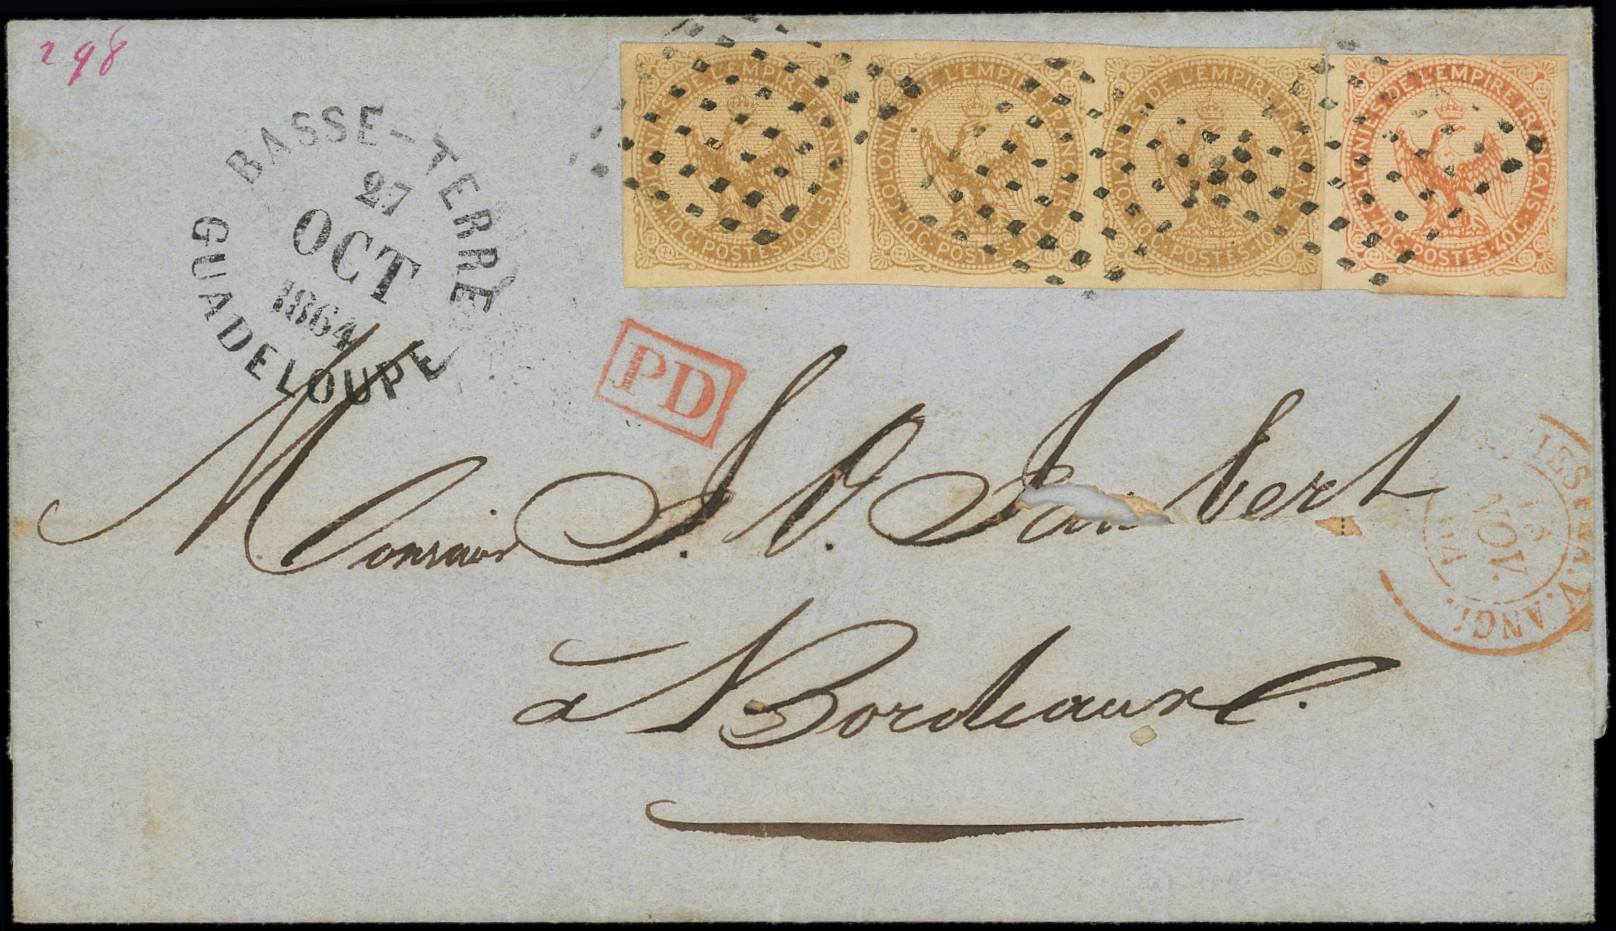 298
BASSE-TERRE
27
OCT
1864
GUADELOUPE
COLONIES DE L'EMPIRE FRANÇAIS
10C. POSTES. 10C.
COLONIES DE L'EMPIRE FRANÇAIS
10C. POSTES. 10C.
COLONIES DE L'EMPIRE FRANÇAIS
10C. POSTES. 10C.
COLONIES DE L'EMPIRE FRANÇAIS
40C. POSTES. 40C.
PD
Monsieur J. V. Jaubert
à Bordeaux.
NOV.
V. ANGL.